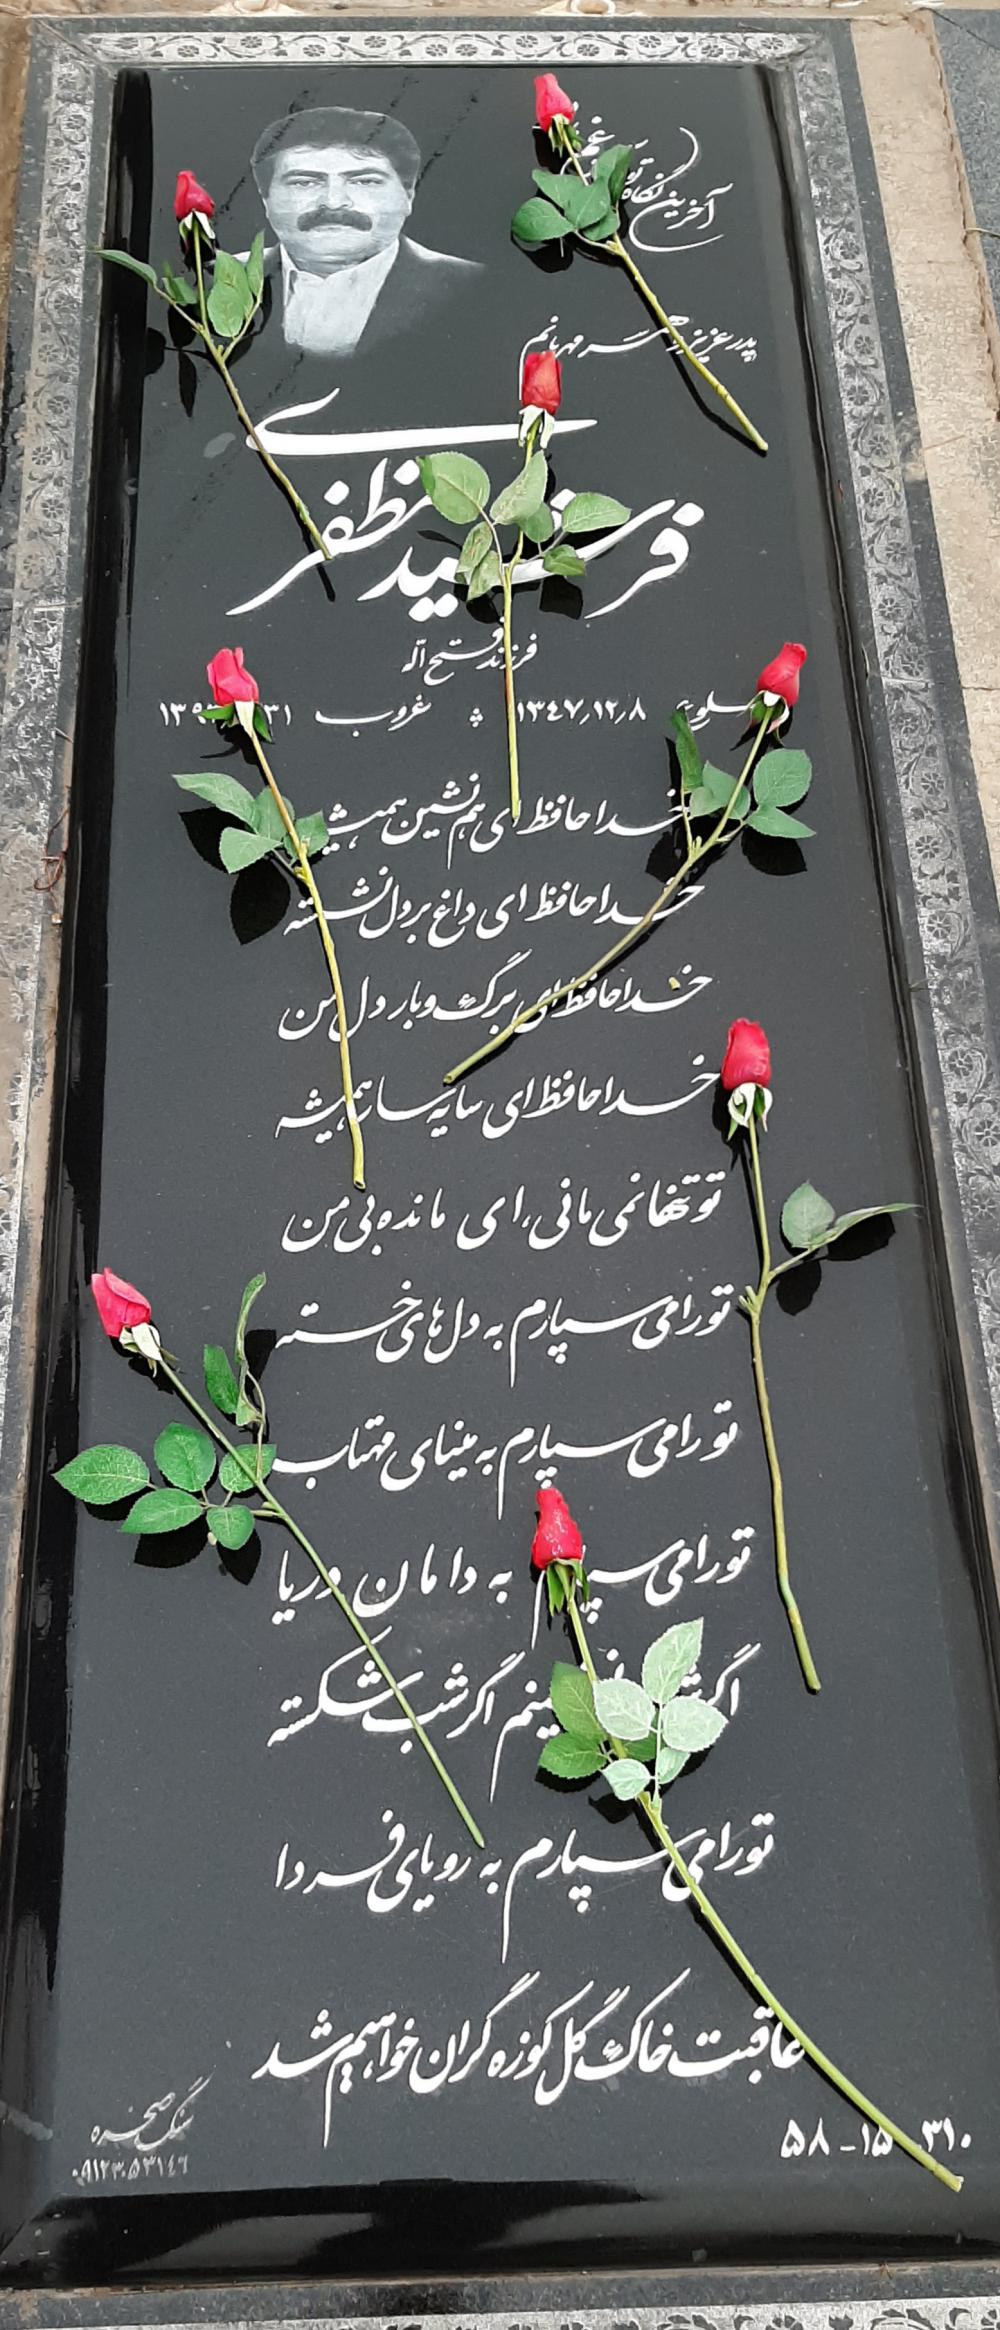 آخرین نگاه تو
پدر عزیز و همسر مهربانم
فرشید مظفری
فرزند فتح اله
طلوع ۱۳۴۷٫۱۲٫۸ غروب
خداحافظ ای هم نشین همیشه
خداحافظ ای داغ بر دل نشسته
خداحافظ ای برگ و بار دل من
خداحافظ ای سایه سار همیشه
تو تنها نمی مانی، ای مانده بی من
تو را می سپارم به دل های خسته
تو را می سپارم به مینای مهتاب
تو را می سپارم به دامان دریا
اگر شب نشینم اگر شب شکسته
تو را می سپارم به رویای فردا
عاقبت خاک گل کوزه گران خواهیم شد
۳۱۰ - ۱۵ - ۵۸
سنگ صخره